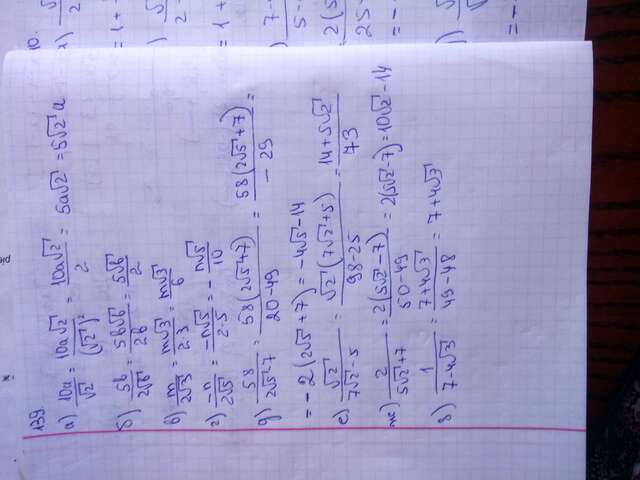 139
а) 10a/√2 = 10a√2/(√2)² = 10a√2/2 = 5a√2 = 5√2 a
б) 5b/2√b = 5b√b/2b = 5√b/2
в) m/2√3 = m√3/2·3 = m√3/6
г) -n/2√5 = -n√5/2·5 = - n√5/10
д) 58/2√5-7 = 58(2√5+7)/20-49 = 58(2√5+7)/-29 =
= -2(2√5+7) = -4√5-14
е) √2/7√2-5 = √2(7√2+5)/98-25 = 14+5√2/73
ж) 2/5√2+7 = 2(5√2-7)/50-49 = 2(5√2-7) = 10√2-14
з) 1/7-4√3 = 7+4√3/49-48 = 7+4√3
10.